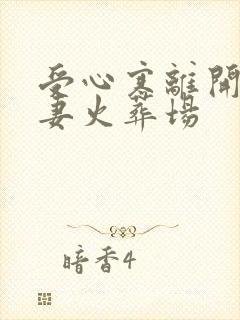 受心寒離開
妻火葬場
暗香4